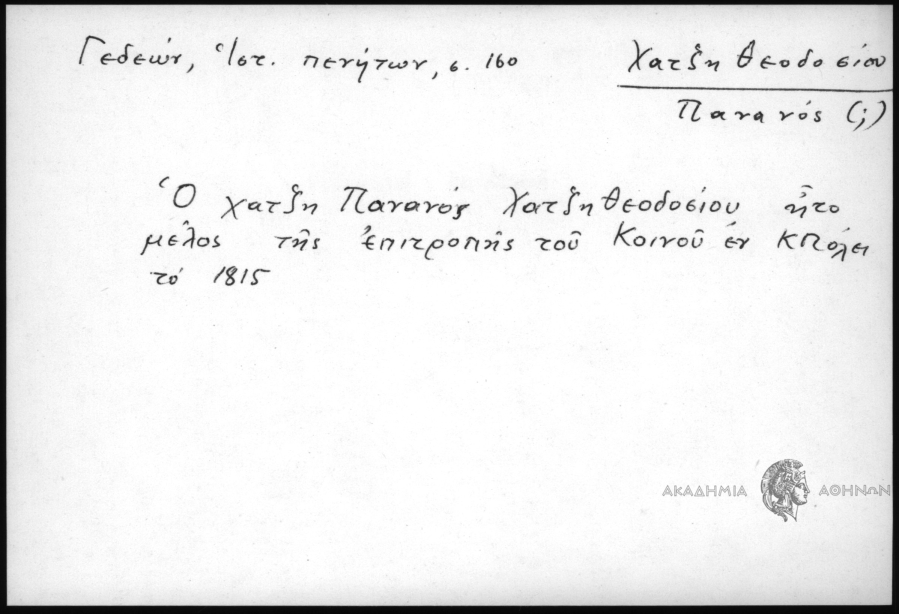 Γεδεών, Ἱστ. πενήτων, σ. 160
Χατζη θεοδοσίου
Πανανός (;)
Ὁ χατζη Πανανός Χατζηθεοδοσίου ἦτο
μέλος τῆς ἐπιτροπῆς τοῦ Κοινοῦ ἐν ΚΠόλει
τό 1815
ΑΚΑΔΗΜΙΑ ΑΘΗΝΩΝ